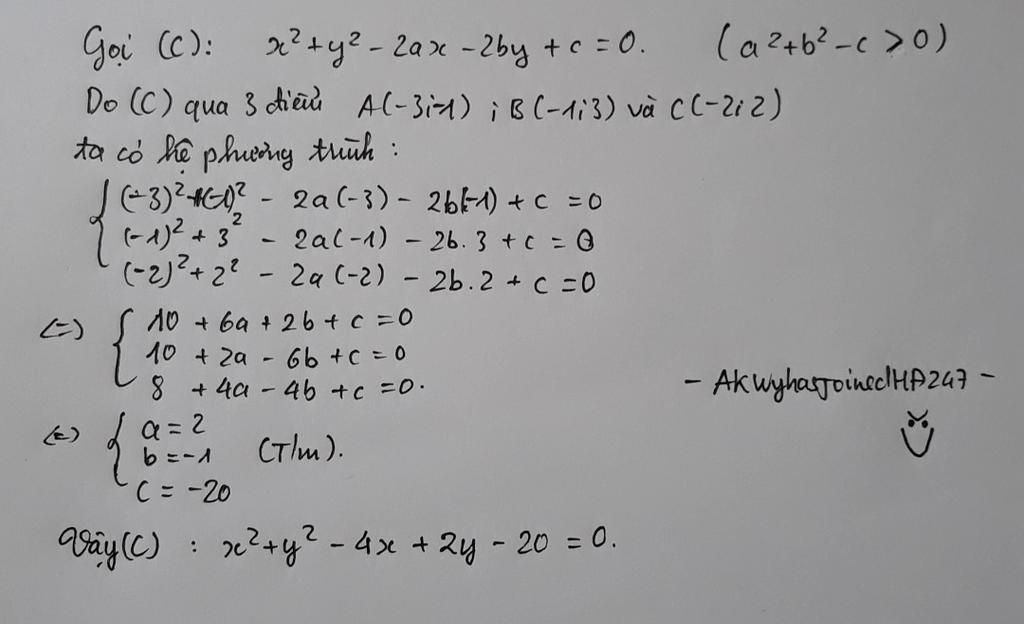 Gọi (C): x²+y² - 2ax - 2by + c = 0. (a²+b²-c > 0)
Do (C) qua 3 điểm A(-3;-1) ; B(-1;3) và C(-2;2)
ta có hệ phương trình :
(-3)²+(-1)² - 2a(-3) - 2b(-1) + c = 0
(-1)² + 3² - 2a(-1) - 2b.3 + c = 0
(-2)² + 2² - 2a(-2) - 2b.2 + c = 0
(=) 10 + 6a + 2b + c = 0
10 + 2a - 6b + c = 0
8 + 4a - 4b + c = 0.
- AKwyhasJoinedHD247 -
(=) a = 2
b = -1 (T/m).
c = -20
Vậy (C) : x²+y² - 4x + 2y - 20 = 0.